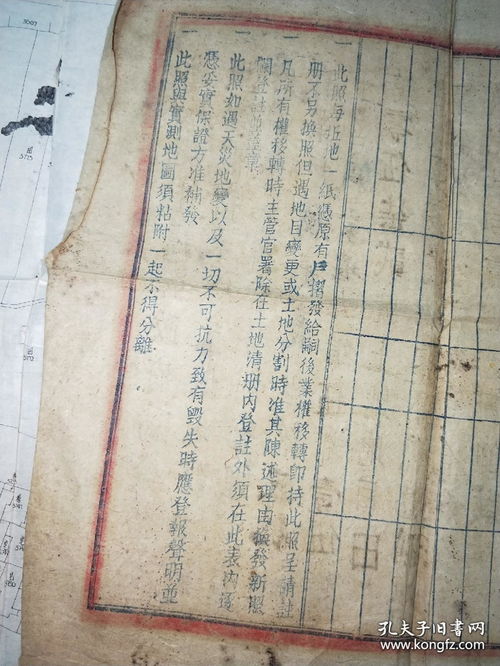 一 此照每坵地一紙憑原有戶摺發給嗣後業權移轉即持此照呈請註
册不另換照但遇地目變更或土地分割時准其陳述理由換發新照
一 凡所有權移轉時主管官署除在土地清册內登註外須在此表內逐
欄登註並蓋章
一 此照如遇天災地變以及一切不可抗力致有毀失時應登報聲明並
憑妥實保證方准補發
一 此照與實測地圖須粘附一起不得分離
孔夫子旧书网
www.kongfz.com